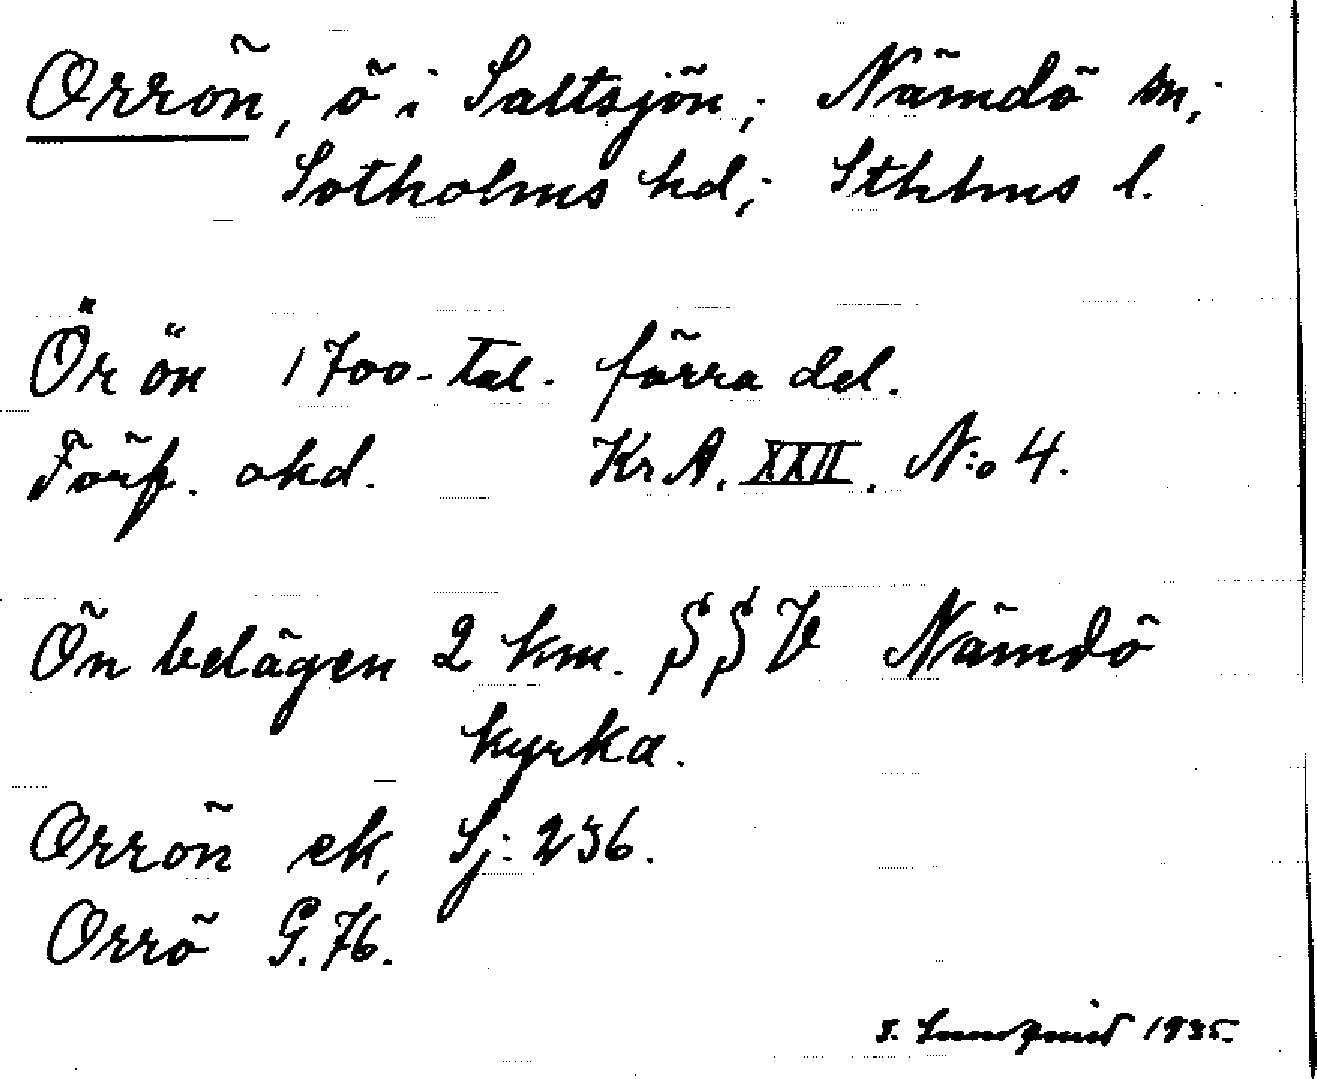 Orrön, ö i Saltsjön; Nämdö sn;
Sotholms hd; Sthlms l.
Örön 1700-tal. förra del.
Förf. okd. Kr A. XXII. N:o 4.
Ön belägen 2 km. SSV Nämdö
kyrka.
Orrön ek, Sj: 236.
Orrö G. 76.
S. 1935.